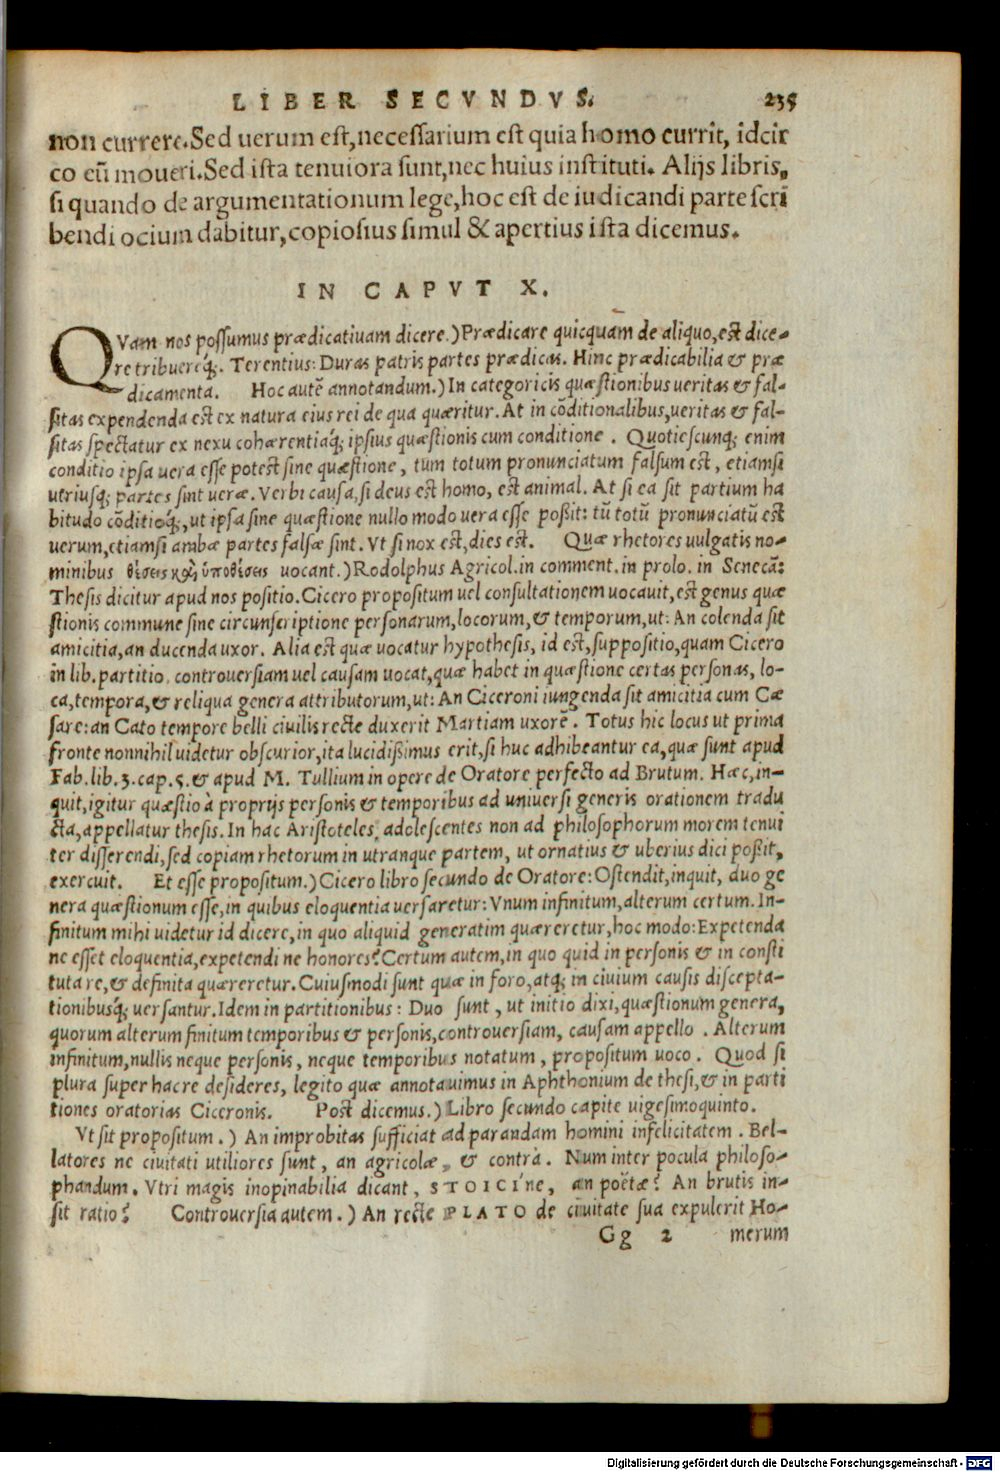 LIBER SECVNDVS. 235
non currere. Sed uerum est, necessarium est quia homo currit, idcir
co eũ moueri. Sed ista tenuiora sunt, nec huius instituti. Alijs libris,
si quando de argumentationum lege, hoc est de iudicandi parte scri
bendi ocium dabitur, copiosius simul & apertius ista dicemus.
IN CAPVT X.
QVam nos possumus prædicatiuam dicere.) Prædicare quicquam de aliquo, est dice-
re tribuereq́;. Terentius: Duras patris partes prædicas. Hinc prædicabilia & præ
dicamenta. Hoc autẽ annotandum.) In categoricis quæstionibus ueritas & fal-
sitas expendenda est ex natura eius rei de qua quæritur. At in cõditionalibus, ueritas & fal-
sitas spectatur ex nexu cohærentiaq́; ipsius quæstionis cum conditione. Quotiescunq; enim
conditio ipsa uera esse potest sine quæstione, tum totum pronunciatum falsum est, etiamsi
utriusq; partes sint ueræ. Verbi causa, si deus est homo, est animal. At si ea sit partium ha
bitudo cõditioq́;, ut ipsa sine quæstione nullo modo uera esse poßit: tũ totũ pronunciatũ est
uerum, etiamsi ambæ partes falsæ sint. Vt si nox est, dies est. Quæ rhetores uulgatis no-
minibus θέσεις καὶ ὑποθέσεις uocant.) Rodolphus Agricol. in comment. in prolo. in Senecã:
Thesis dicitur apud nos positio. Cicero propositum uel consultationem uocauit, est genus quæ
stionis commune sine circunscriptione personarum, locorum, & temporum, ut: An colenda sit
amicitia, an ducenda uxor. Alia est quæ uocatur hypothesis, id est, suppositio, quam Cicero
in lib. partitio. controuersiam uel causam uocat, quæ habet in quæstione certas personas, lo-
ca, tempora, & reliqua genera attributorum, ut: An Ciceroni iungenda sit amicitia cum Cæ
sare: an Cato tempore belli ciuilis recte duxerit Martiam uxorẽ. Totus hic locus ut prima
fronte nonnihil uidetur obscurior, ita lucidißimus erit, si huc adhibeantur ea, quæ sunt apud
Fab. lib. 3. cap. 5. & apud M. Tullium in opere de Oratore perfecto ad Brutum. Hæc, in-
quit, igitur quæstio à proprijs personis & temporibus ad uniuersi generis orationem tradu
cta, appellatur thesis. In hac Aristoteles, adolescentes non ad philosophorum morem tenui
ter disserendi, sed copiam rhetorum in utranque partem, ut ornatius & uberius dici poßit,
exercuit. Et esse propositum.) Cicero libro secundo de Oratore: Ostendit, inquit, duo ge
nera quæstionum esse, in quibus eloquentia uersaretur: Vnum infinitum, alterum certum. In-
finitum mihi uidetur id dicere, in quo aliquid generatim quæreretur, hoc modo: Expetenda
ne esset eloquentia, expetendi ne honores? Certum autem, in quo quid in personis & in consti
tuta re, & definita quæreretur. Cuiusmodi sunt quæ in foro, atq; in ciuium causis discepta-
tionibusq́; uersantur. Idem in partitionibus: Duo sunt, ut initio dixi, quæstionum genera,
quorum alterum finitum temporibus & personis, controuersiam, causam appello. Alterum
infinitum, nullis neque personis, neque temporibus notatum, propositum uoco. Quod si
plura super hac re desideres, legito quæ annotauimus in Aphthonium de thesi, & in parti
tiones oratorias Ciceronis. Post dicemus.) Libro secundo capite uigesimoquinto.
Vt sit propositum.) An improbitas sufficiat ad parandam homini infelicitatem. Bel-
latores ne ciuitati utiliores sunt, an agricolæ, & contrà. Num inter pocula philoso-
phandum. Vtri magis inopinabilia dicant, STOICI ne, an poëtæ? An brutis in-
sit ratio? Controuersia autem.) An recte PLATO de ciuitate sua expulerit Ho-
Gg 2 merum
Digitalisierung gefördert durch die Deutsche Forschungsgemeinschaft - DFG